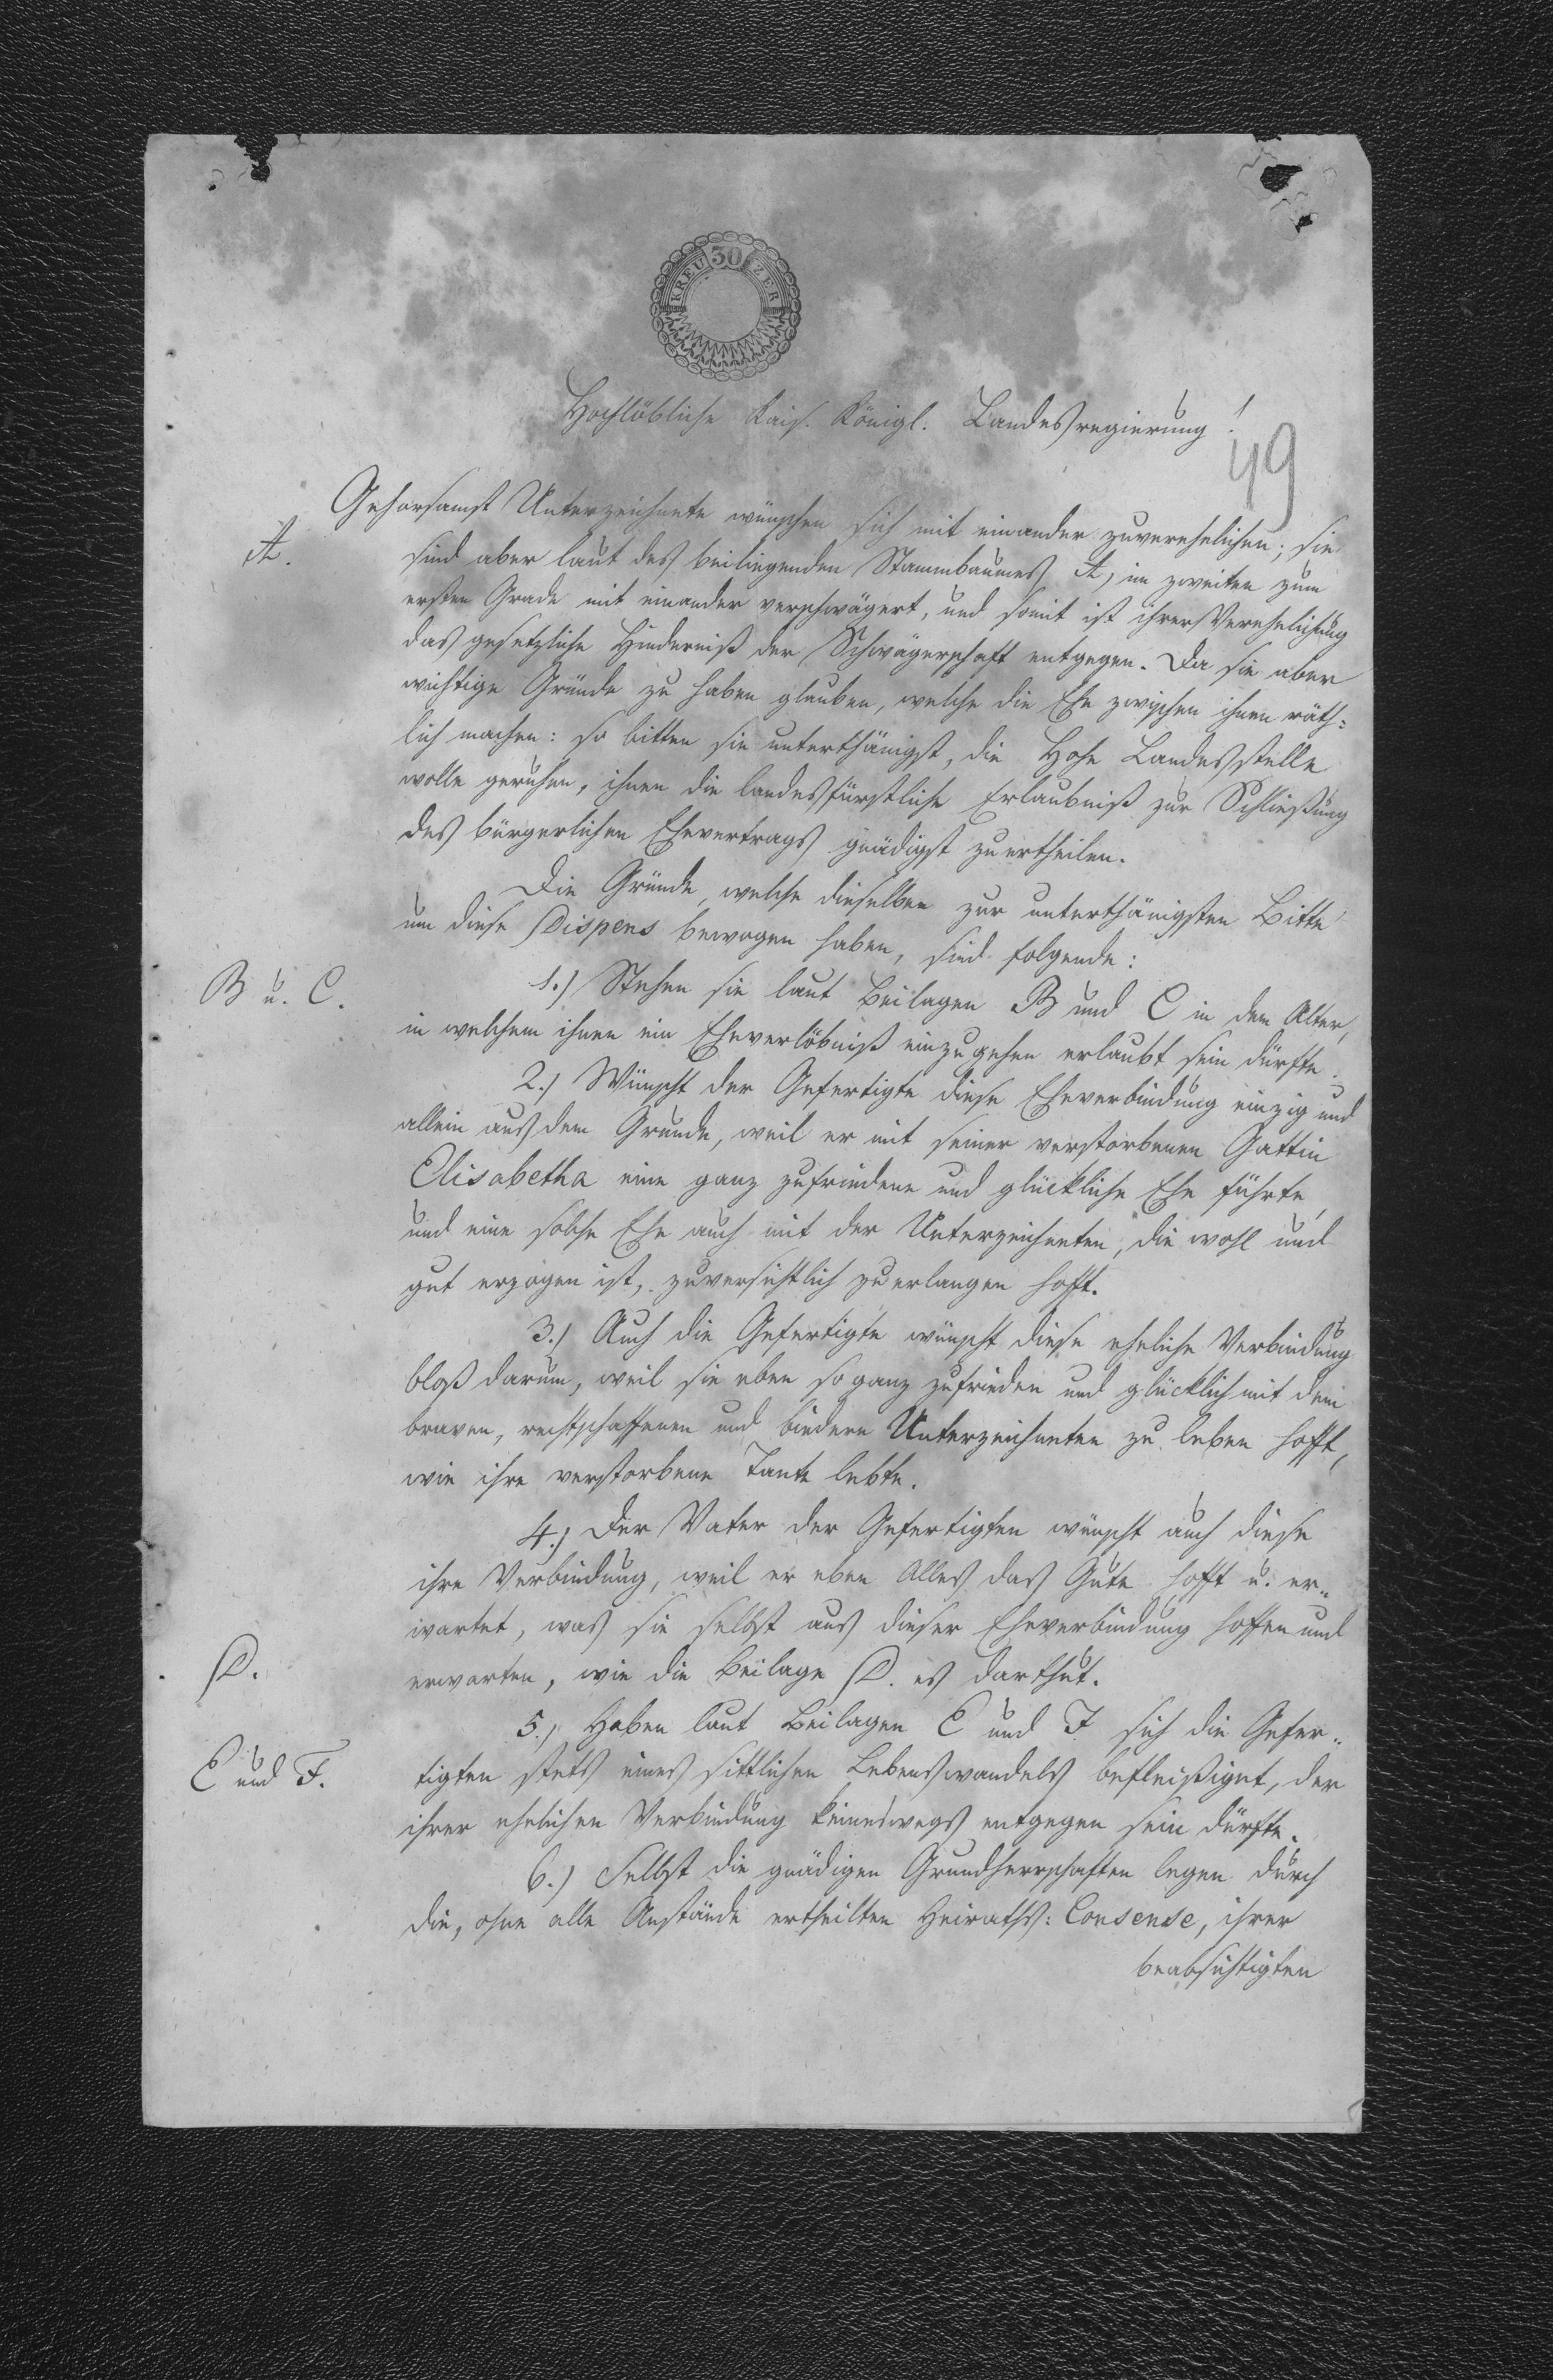 30
KREUZER
Hochlöbliche Kais. Königl. Landesregierung!
49
Gehorsamst Unterzeichnete wünschen sich mit einander zuverehelichen; sie
A.
sind aber laut des beiliegenden Stammbaumes A, im zweiten zum
ersten Grade mit einander verschwägert, und somit ist ihrer Verehelichung
das gesetzliche Hinderniß der Schwägerschaft entgegen. Da sie aber
wichtige Gründe zu haben glauben, welche die Ehe zwischen ihnen räth=
lich machen: so bitten sie unterthänigst, die Hohe Landesstelle
wolle geruhen, ihnen die landesfürstliche Erlaubniß zur Schließung
des bürgerlichen Ehevertrags gnädigst zu ertheilen.
Die Gründe, welche dieselben zur unterthänigsten Bitte
um diese Dispens bewogen haben, sind folgende:
B u. C.
1.) Stehen sie laut Beilagen B und C in dem Alter,
in welchem ihnen ein Eheverlöbniß einzugehen erlaubt sein dürfte.
2.) Wünscht der Gefertigte diese Eheverbindung einzig und
allein aus dem Grunde, weil er mit seiner verstorbenen Gattin
Elisabetha eine ganz zufriedene und glückliche Ehe führte,
und eine solche Ehe auch mit der Unterzeichneten, die wohl und
gut erzogen ist, zuversichtlich zu erlangen hofft.
3.) Auch die Gefertigte wünscht diese eheliche Verbindung
bloß darum, weil sie eben so ganz zufrieden und glücklich mit dem
braven, rechtschaffenen und biedern Unterzeichneten zu leben hofft,
wie ihre verstorbene Tante lebte.
4.) Der Vater der Gefertigten wünscht auch diese
ihre Verbindung, weil er eben Alles das Gute hofft u. er„
wartet, was sie selbst aus dieser Eheverbindung hoffen und
D.
erwarten, wie die Beilage D. es darthut.
5.) Haben laut Beilagen E und F sich die Gefer„
E und F.
tigten stets eines sittlichen Lebenswandels befleißiget, der
ihrer ehelichen Verbindung keineswegs entgegen sein dürfte.
6.) Selbst die gnädigen Grundherrschaften legen durch
die, ohne alle Anstände ertheilten Heiraths: Consense, ihrer
beabsichtigten